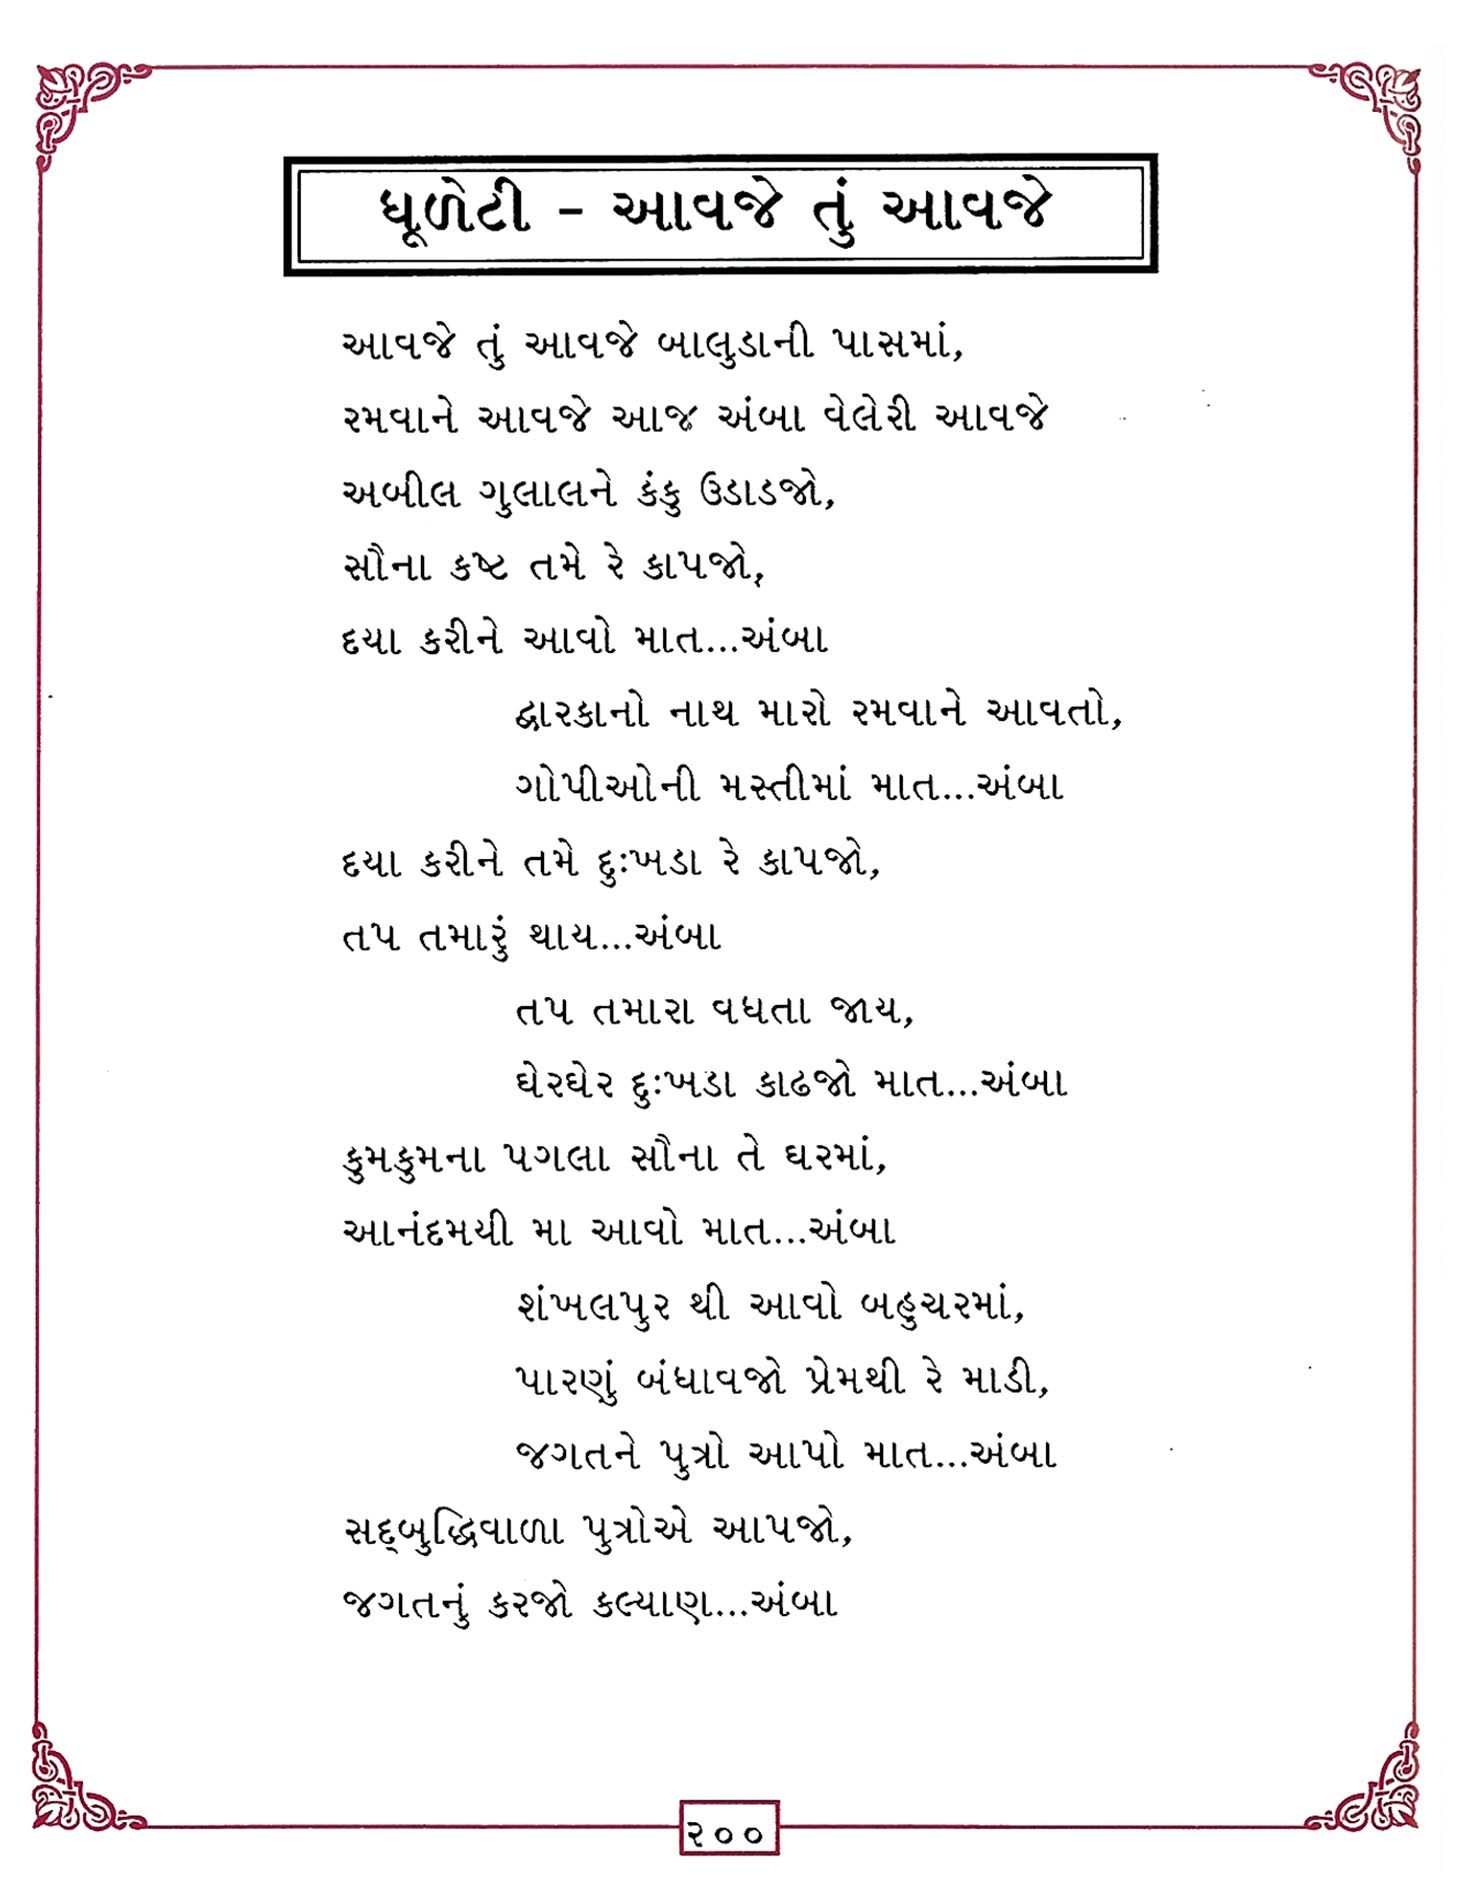 ધૂળેટી - આવજે તું આવજે
આવજે તું આવજે બાલુડાની પાસમાં,
રમવાને આવજે આજ અંબા વેલેરી આવજે
અબીલ ગુલાલને કંકુ ઉડાડજો,
સૌના કષ્ટ તમે રે કાપજો,
દયા કરીને આવો માત...અંબા
દ્વારકાનો નાથ મારો રમવાને આવતો,
ગોપીઓની મસ્તીમાં માત...અંબા
દયા કરીને તમે દુઃખડા રે કાપજો,
તપ તમારું થાય...અંબા
તપ તમારા વધતા જાય,
ઘેરઘેર દુઃખડા કાઢજો માત...અંબા
કુમકુમના પગલા સૌના તે ઘરમાં,
આનંદમયી મા આવો માત...અંબા
શંખલપુર થી આવો બહુચરમાં,
પારણું બંધાવજો પ્રેમથી રે માડી,
જગતને પુત્રો આપો માત...અંબા
સદ્‌બુદ્ધિવાળા પુત્રોએ આપજો,
જગતનું કરજો કલ્યાણ...અંબા
૨૦૦